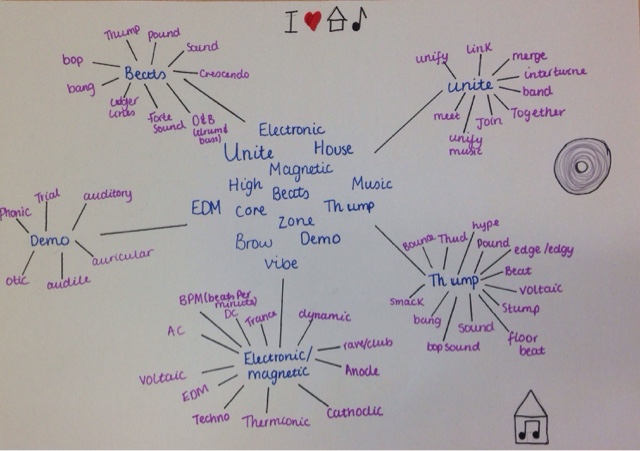 I
Thump
Pound
Sound
Crescendo
bop
bang
Beats
Ledger
Lines
Forte
Sound
D&B
(drum &
bass)
unify
Link
merge
intertwine
band
Together
Join
unify
music
meet
unite
Electronic
Unite
House
Magnetic
High
Beats
Music
EDM
Core
Thump
Zone
Brow
Demo
vibe
Phonic
Trial
auditory
Demo
auricular
otic
audile
Bounce
Thud
hype
Pound
edge/edgy
Beat
voltaic
Stump
floor
beat
Sound
bop sound
bang
smack
Thump
BPM (beats Per
minute)
DC
Trance
dynamic
AC
rave/club
Electronic/
magnetic
Anode
Voltaic
EDM
Techno
Thermionic
Cathodic